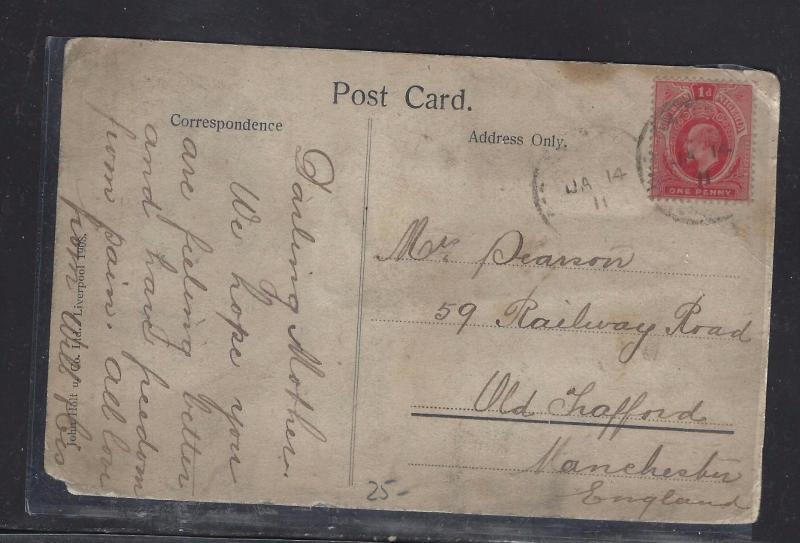 Post Card.
Correspondence
Address Only.
Darling Mother.
We hope you
are feeling better
and have freedom
from pain. all love
from Will & Cis
John Holt u. Co. Ltd., Liverpool 1908.
1d
NIGERIA
ONE PENNY
JA 14
11
JA 14
11
Mrs Pearson
59 Railway Road
Old Trafford
Manchester
England
25-